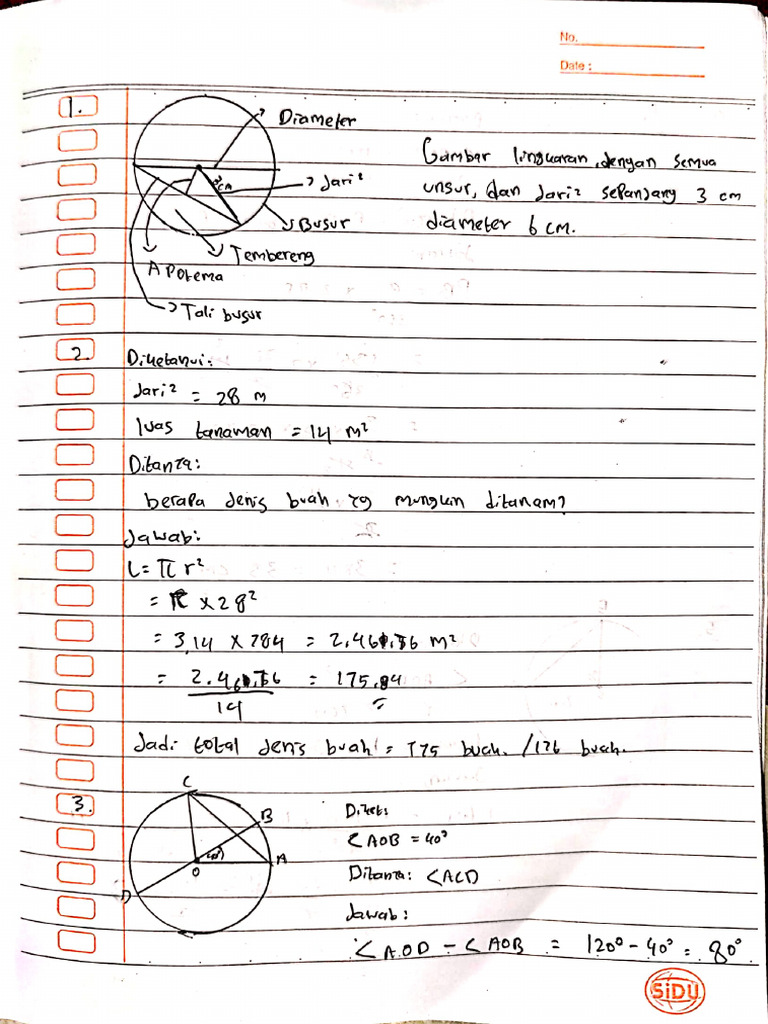 No.
Date :
1.
Diameter
3 cm
Jari²
Busur
Tembereng
APotema
Tali busur
Gambar lingkaran, dengan semua
unsur, dan Jari² sepanjang 3 cm
diameter 6 cm.
2.
Diketahui:
Jari² = 28 m
luas tanaman = 14 m²
Ditanya:
berapa Jenis buah yg mungkin ditanam?
Jawab:
L = π r²
= π × 28²
= 3,14 × 784 = 2.461,76 m²
= 2.461,76 / 14 = 175,84
Jadi total Jenis buah = 175 buah. / 176 buah.
3.
C
B
40°
A
O
D
Diket:
∠AOB = 40°
Ditanya: ∠ACD
Jawab:
∠AOD - ∠AOB = 120° - 40° = 80°
SiDU